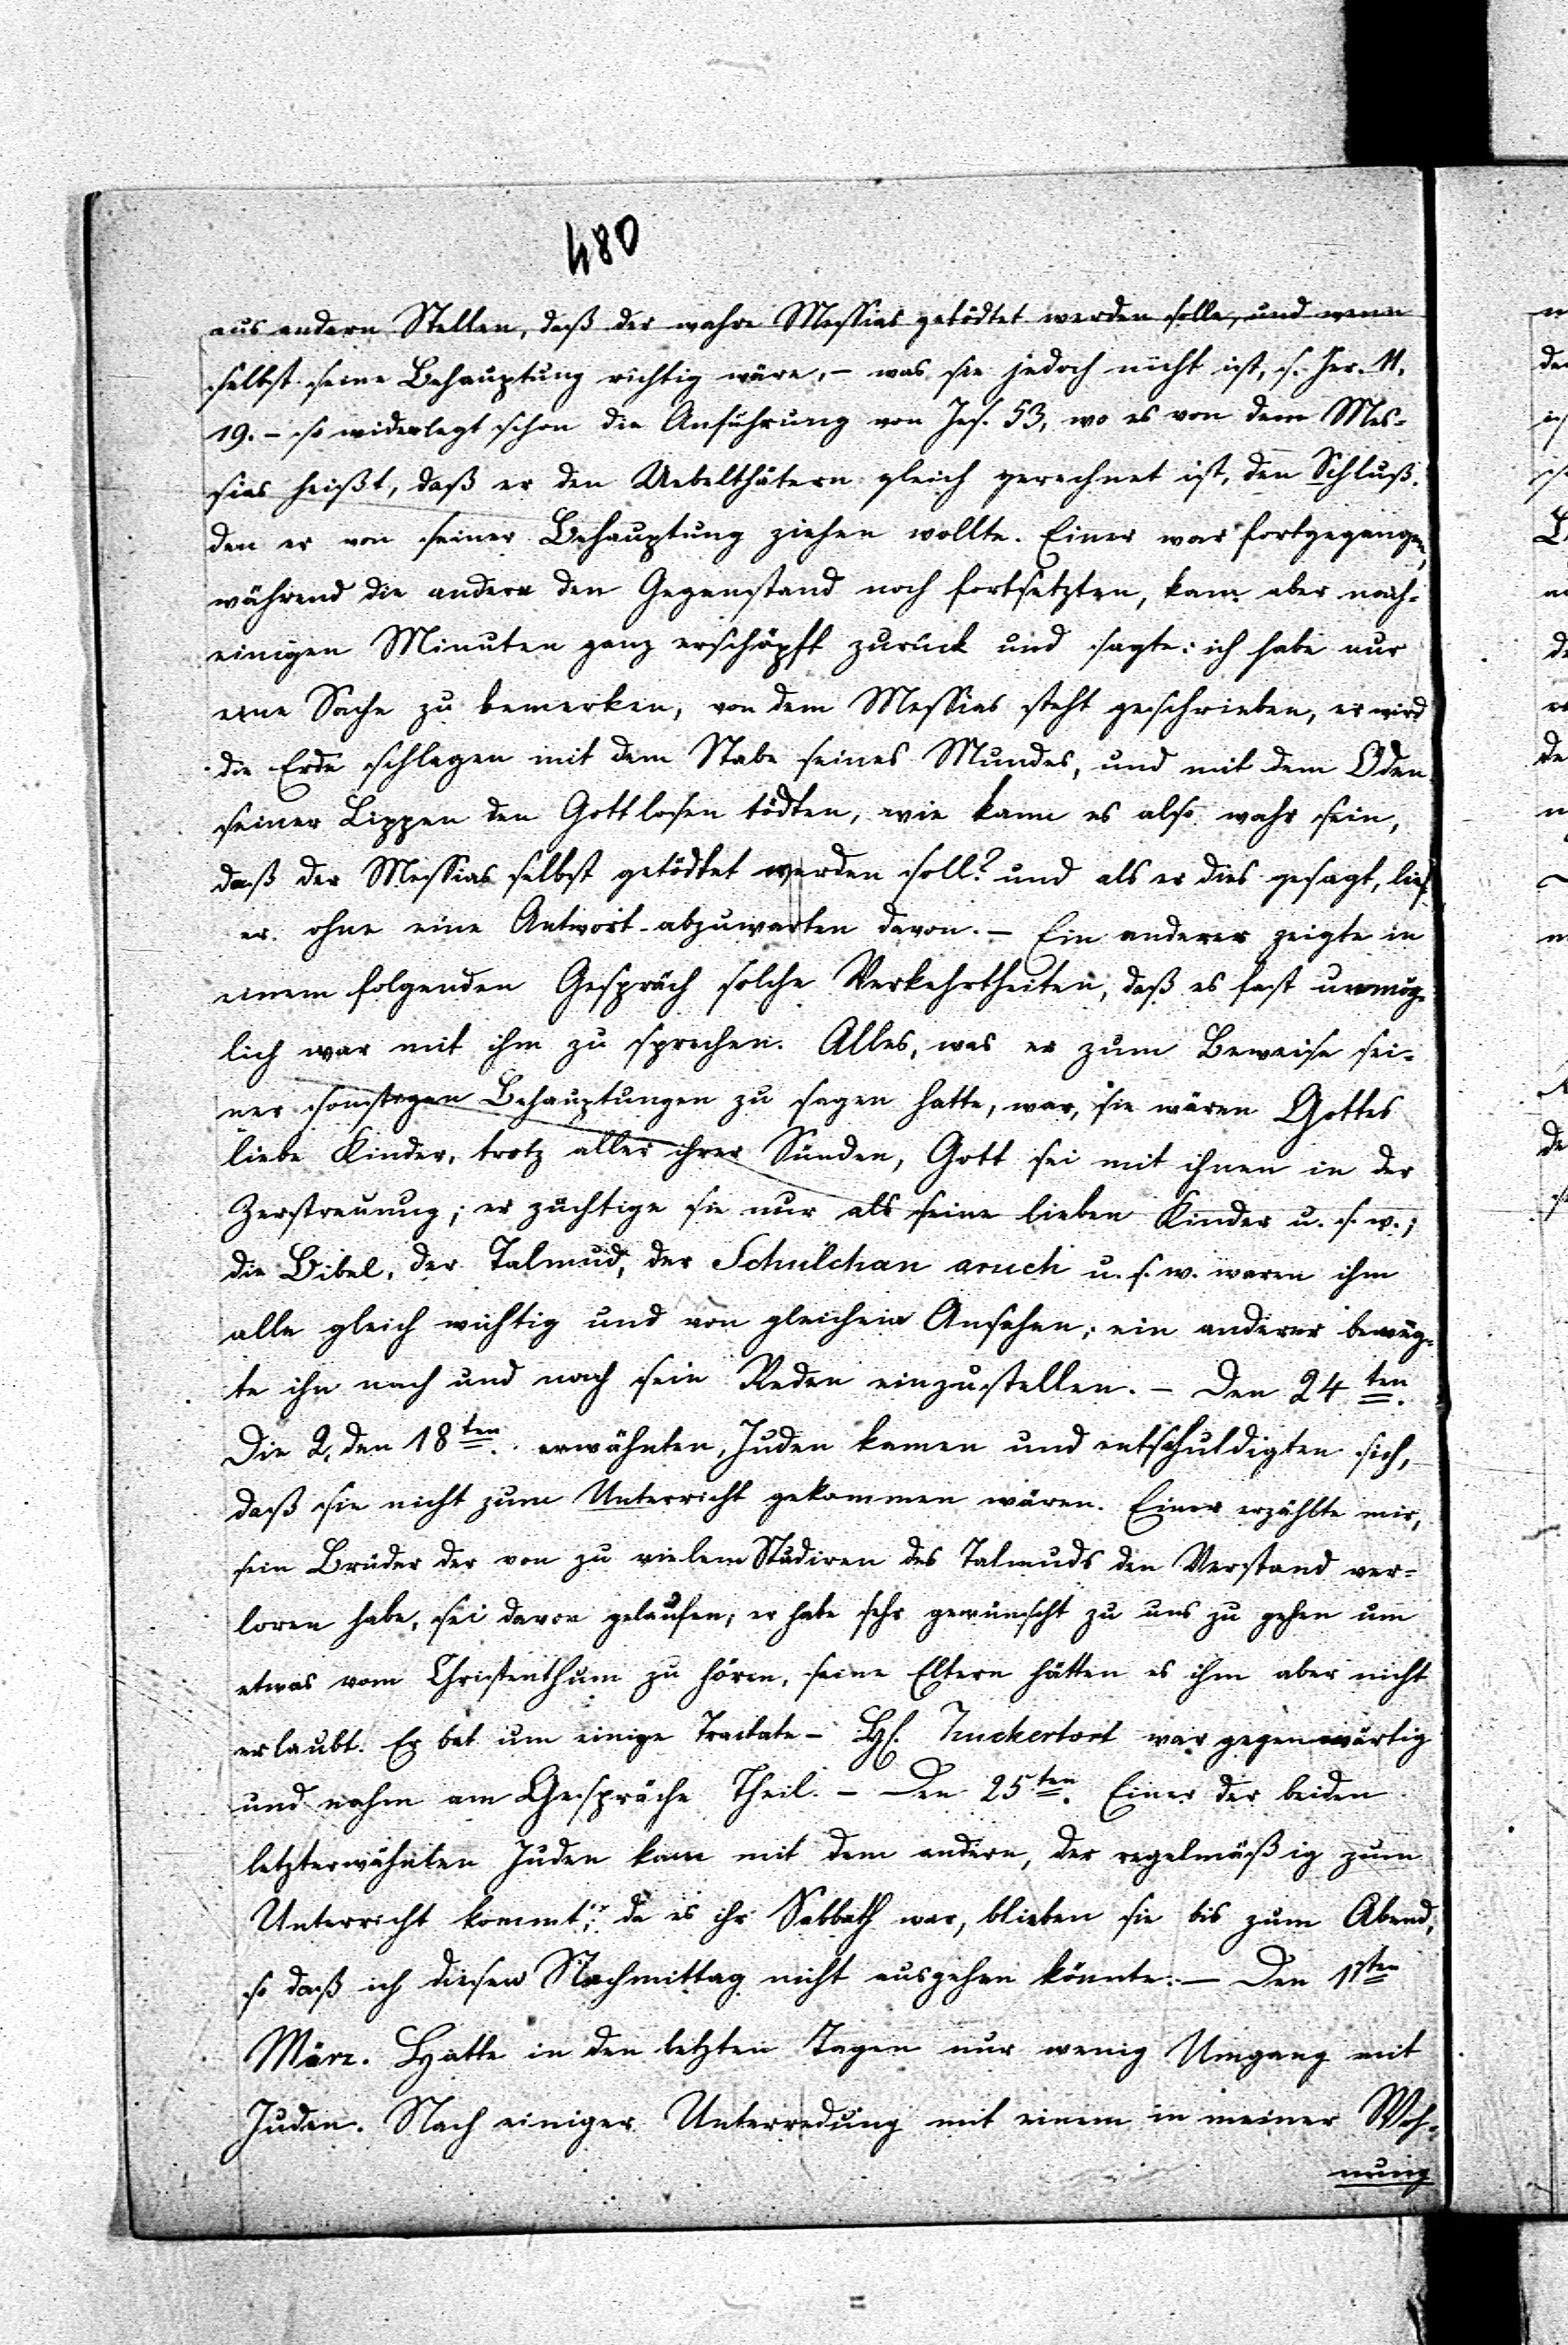 480
aus andern Stellen, daß der wahre Messias getödtet werden solle, und wenn
selbst seine Behauptung richtig wäre, – was sie jedoch nicht ist, s. Jer. 11,
19. – so widerlegt schon die Anführung von Jes. 53, wo es von dem Mes-
sias heißt, daß er den Uebelthätern gleich gerechnet ist, den Schluß,
den er von seiner Behauptung ziehen wollte. Einer war fortgegangen,
während die andern den Gegenstand noch fortsetzten, kam aber nach
einigen Minuten ganz erschöpft zurück und sagte: ich habe nur
eine Sache zu bemerken, von dem Messias steht geschrieben, er wird
die Erde schlagen mit dem Stabe seines Mundes, und mit dem Oden
seiner Lippen den Gottlosen tödten, wie kann es also wahr sein,
daß der Messias selbst getödtet werden soll? und als er dies gesagt, lief
er ohne eine Antwort abzuwarten davon. – Ein anderer zeigte in
einem folgenden Gespräch solche Verkehrtheiten, daß es fast unmög-
lich war mit ihm zu sprechen. Alles, was er zum Beweise sei-
ner sonstigen Behauptungen zu sagen hatte, war, sie wären Gottes
liebe Kinder, trotz aller ihrer Sünden, Gott sei mit ihnen in der
Zerstreuung; er züchtige sie nur als seine lieben Kinder u. s. w.;
die Bibel, der Talmud, der Schulchan aruch u. s. w. waren ihm
alle gleich wichtig und von gleichem Ansehen; ein anderer beweg-
te ihn nach und nach sein Reden einzustellen. – Den 24ten.
Die 2, den 18ten. erwähnten, Juden kamen und entschuldigten sich,
daß sie nicht zum Unterricht gekommen wären. Einer erzählte mir,
sein Bruder der von zu vielem Studiren des Talmuds den Verstand ver-
loren habe, sei davon gelaufen; er habe sehr gewünscht zu uns zu gehen um
etwas vom Christenthum zu hören, seine Eltern hätten es ihm aber nicht
erlaubt. Er bat um einige Tractate – H. Zuckertort war gegenwärtig
und nahm am Gespräche Theil. – Den 25ten. Einer der beiden
letzterwähnten Juden kam mit dem andern, der regelmäßig zum
Unterricht kommt; da es ihr Sabbath war, blieben sie bis zum Abend,
so daß ich diesen Nachmittag nicht ausgehen konnte. – Den 1sten
März. Hatte in den letzten Tagen nur wenig Umgang mit
Juden. Nach einiger Unterredung mit einem in meiner Woh-
nung